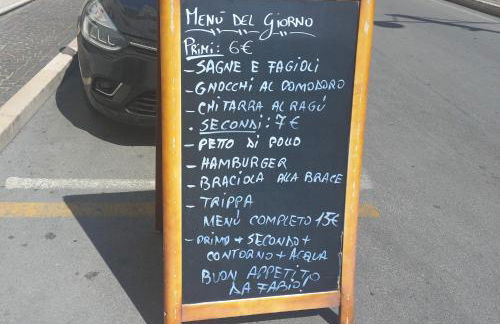 MENÙ DEL GIORNO
PRIMI: 6€
- SAGNE E FAGIOLI
- GNOCCHI AL POMODORO
- CHITARRA AL RAGÚ
• SECONDI: 7€
- PETTO DI POLLO
- HAMBURGER
- BRACIOLA ALLA BRACE
- TRIPPA
MENÙ COMPLETO 15€
- PRIMO + SECONDO +
CONTORNO + ACQUA
BUON APPETITO
DA FABIO!